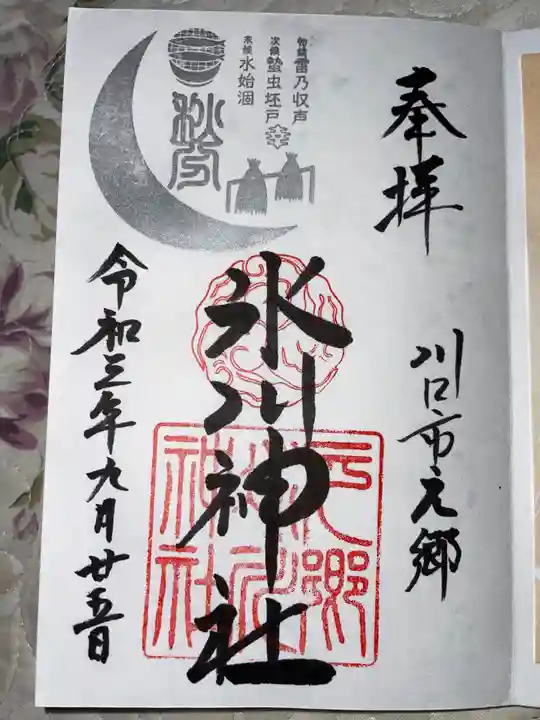 奉拝
川口市元郷
氷川神社
元郷氷川神社
初候 雷乃収声
次候 蟄虫坯戸
末候 水始涸
秋分
令和三年九月廿五日